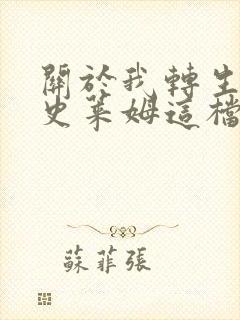 關於我轉生
史萊姆這檔
蘇菲張